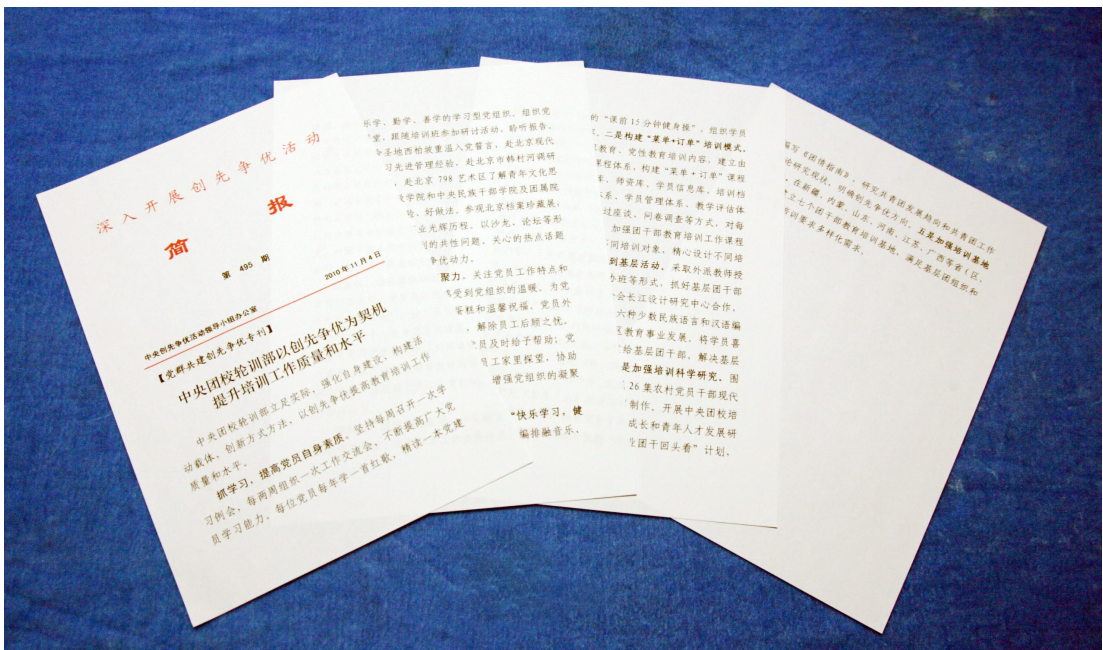 深入开展创先争优活动
简报
第 495 期
中央创先争优活动指导小组办公室 2010年11月4日
【党群共建创先争优专刊】
中央团校轮训部以创先争优为契机
提升培训工作质量和水平
中央团校轮训部立足实际，强化自身建设，构建活
动载体，创新方式方法，以创先争优提高教育培训工作
质量和水平。
抓学习，提高党员自身素质。坚持每周召开一次学
习例会，每两周组织一次工作交流会，不断提高广大党
员学习能力。每位党员每年学一首红歌，精读一本党建
乐学、勤学、善学的学习型党组织。组织党
堂，跟随培训班参加研讨活动，聆听报告。
圣地西柏坡重温入党誓言，赴北京现代
习先进管理经验，赴北京市韩村河调研
，赴北京 798 艺术区了解青年文化思
学院和中央民族干部学院及团属院
验、好做法。参观北京档案珍藏展，
业光辉历程。以沙龙、论坛等形
的共性问题、关心的热点话题
争优动力。
聚力。关注党员工作特点和
享受到党组织的温暖。为党
蛋糕和温馨祝福。党员外
，解除员工后顾之忧。
员及时给予帮助；党
员工家里探望，协助
增强党组织的凝聚
“快乐学习，健
编排融音乐、
的“课前 15 分钟健身操”，组织学员
。二是构建“菜单+订单”培训模式。
教育、党性教育培训内容，建立由
课程体系，构建“菜单＋订单”课程
库、师资库、学员信息库、培训档
系、学员管理体系、教学评估体
过座谈、问卷调查等方式，对每
加强团干部教育培训工作课程
不同培训对象，精心设计不同培
到基层活动。采取外派教师授
办班等形式，抓好基层团干部
会长江设计研究中心合作，
六种少数民族语言和汉语编
区教育事业发展、将学员喜
给基层团干部，解决基层
是加强培训科学研究。围
26 集农村党员干部现代
制作。开展中央团校培
成长和青年人才发展研
团干回头看”计划，
编写《团情指南》，研究共青团发展趋向和共青团工作
论研究现状，明确创先争优方向。五是加强培训基地
。在新疆、内蒙、山东、河南、江苏、广西等省（区、
建立七个团干部教育培训基地，满足基层团组织和
培训要求多样化需求。